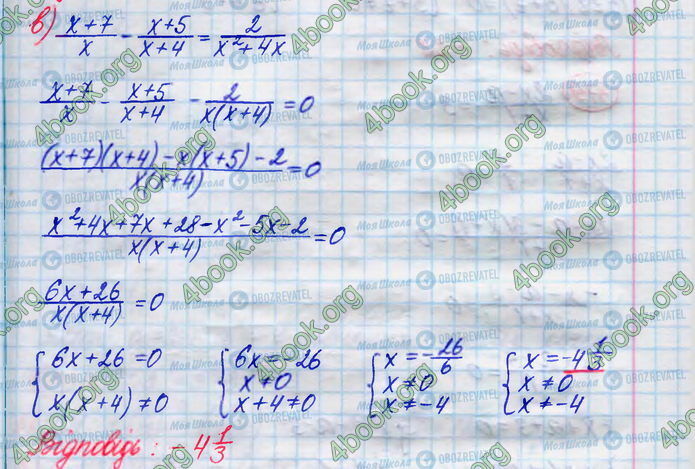 в) (x+7)/x - (x+5)/(x+4) = 2/(x²+4x)
(x+7)/x - (x+5)/(x+4) - 2/(x(x+4)) = 0
((x+7)(x+4) - x(x+5) - 2)/(x(x+4)) = 0
(x²+4x+7x+28-x²-5x-2)/(x(x+4)) = 0
(6x+26)/(x(x+4)) = 0
{ 6x+26=0 { 6x=-26 { x=-26/6 { x=-4 1/3
x(x+4)≠0 x≠0 x≠0 x≠0
x+4≠0 x≠-4 x≠-4
Відповідь: -4 1/3
4book.org
МояШкола
OBOZREVATEL